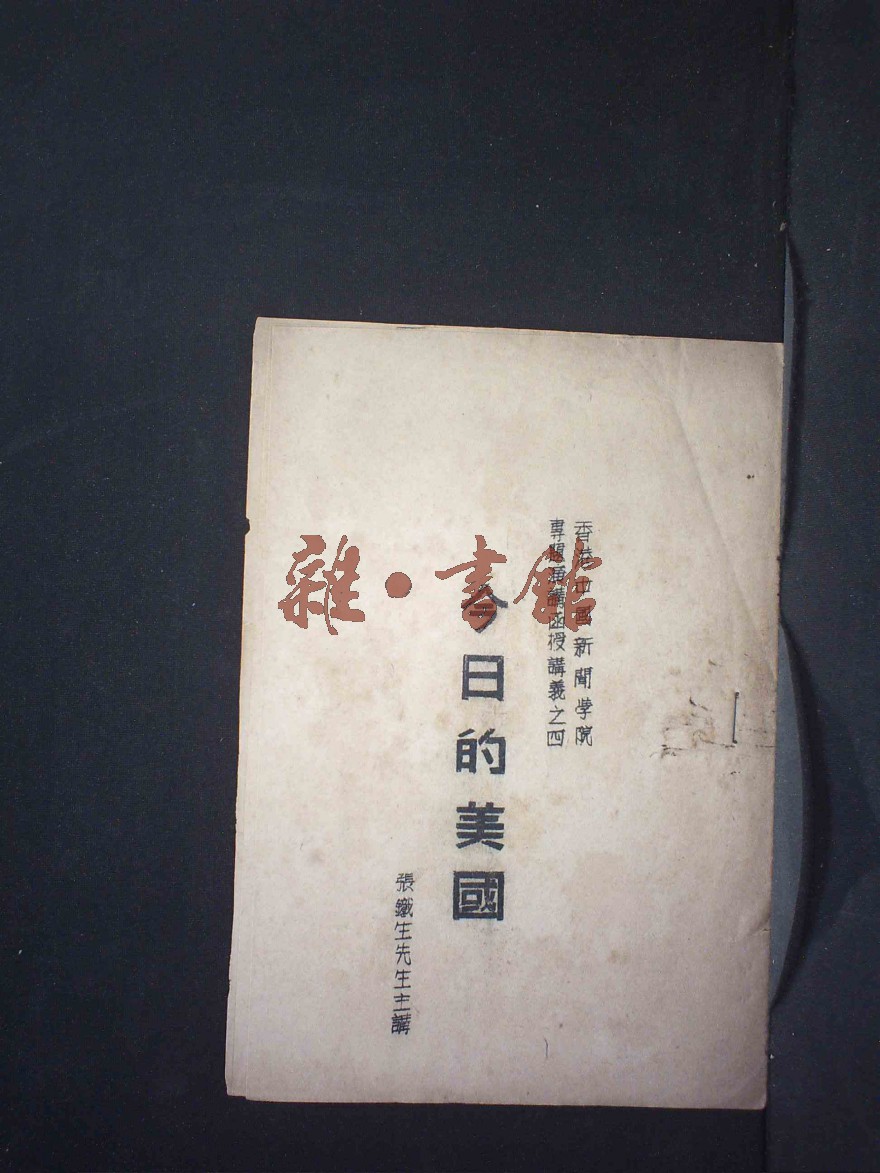 香港中國新聞學院
專題演講函授講義之四
今日的美國
張鐵生先生主講
雜·書館